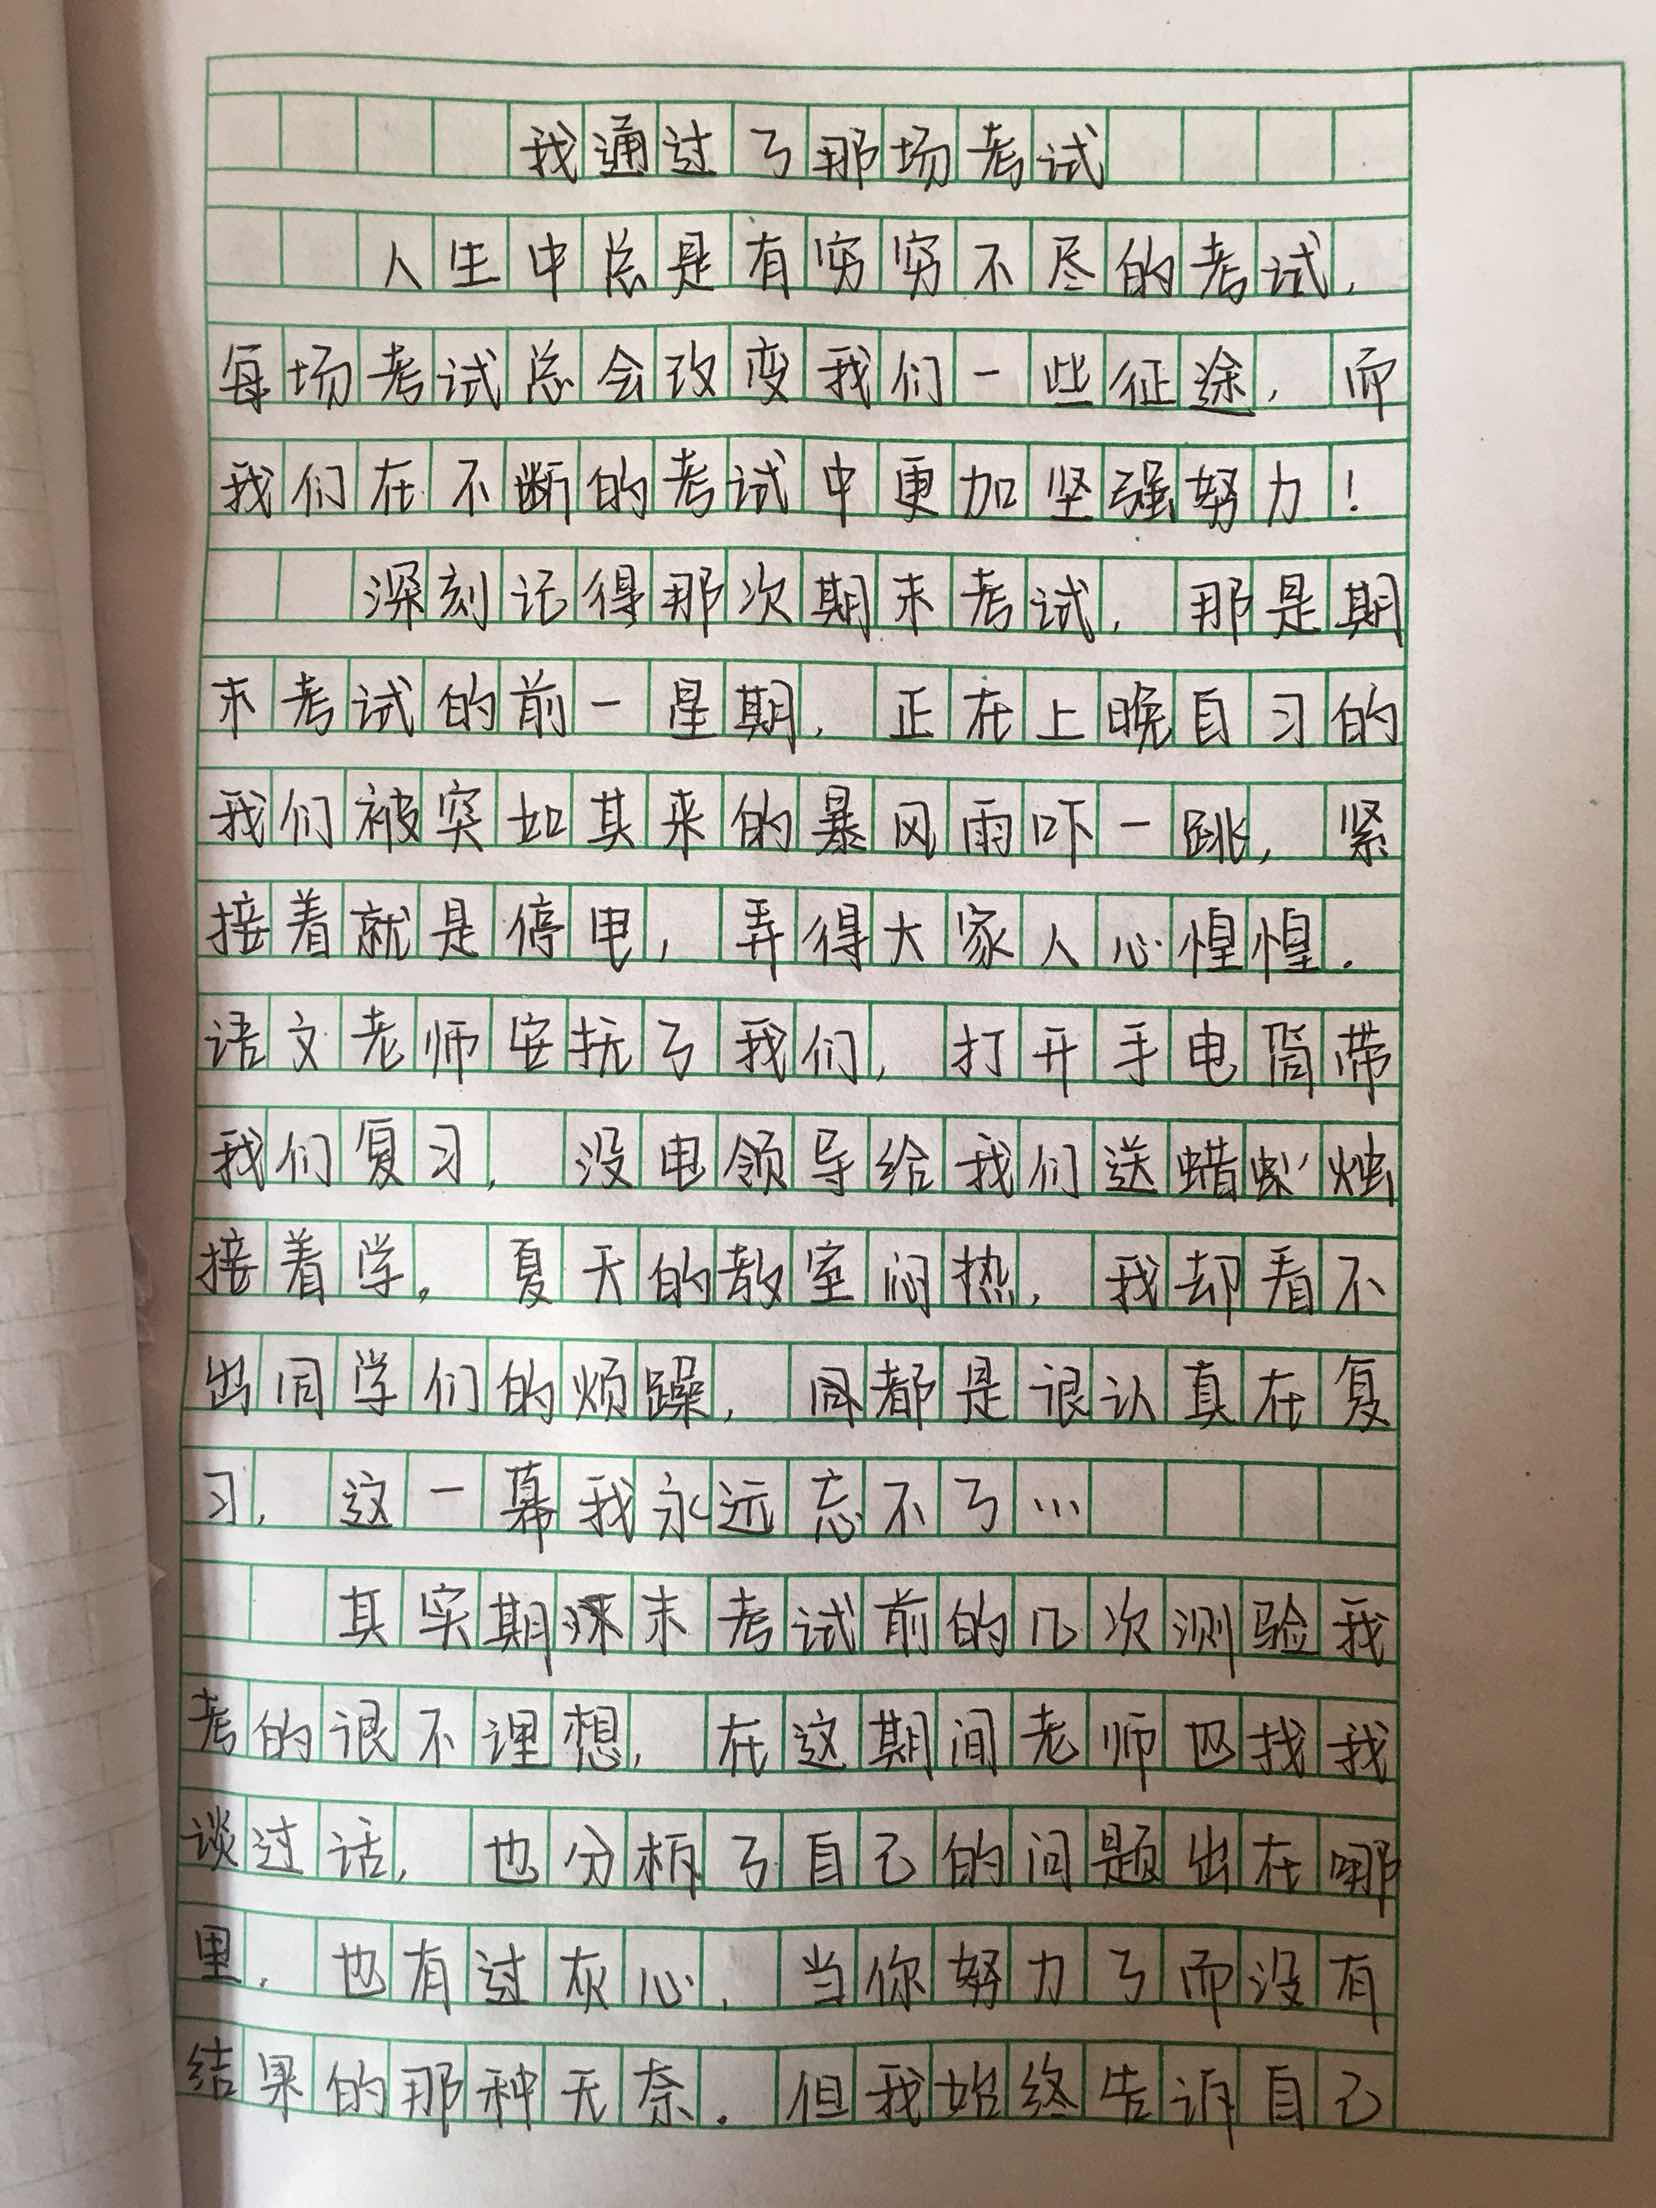 我通过了那场考试
人生中总是有穷穷不尽的考试,
每场考试总会改变我们一些征途,而
我们在不断的考试中更加坚强努力!
深刻记得那次期末考试,那是期
末考试的前一星期,正在上晚自习的
我们被突如其来的暴风雨吓一跳,紧
接着就是停电,弄得大家人心惶惶.
语文老师安抚了我们,打开手电筒带
我们复习,没电领导给我们送蜡烛
接着学。夏天的教室闷热,我却看不
出同学们的烦躁,都是很认真在复
习,这一幕我永远忘不了…
其实期末考试前的几次测验我
考的很不理想,在这期间老师也找我
谈过话,也分析了自己的问题出在哪
里,也有过灰心,当你努力了而没有
结果的那种无奈.但我始终告诉自己